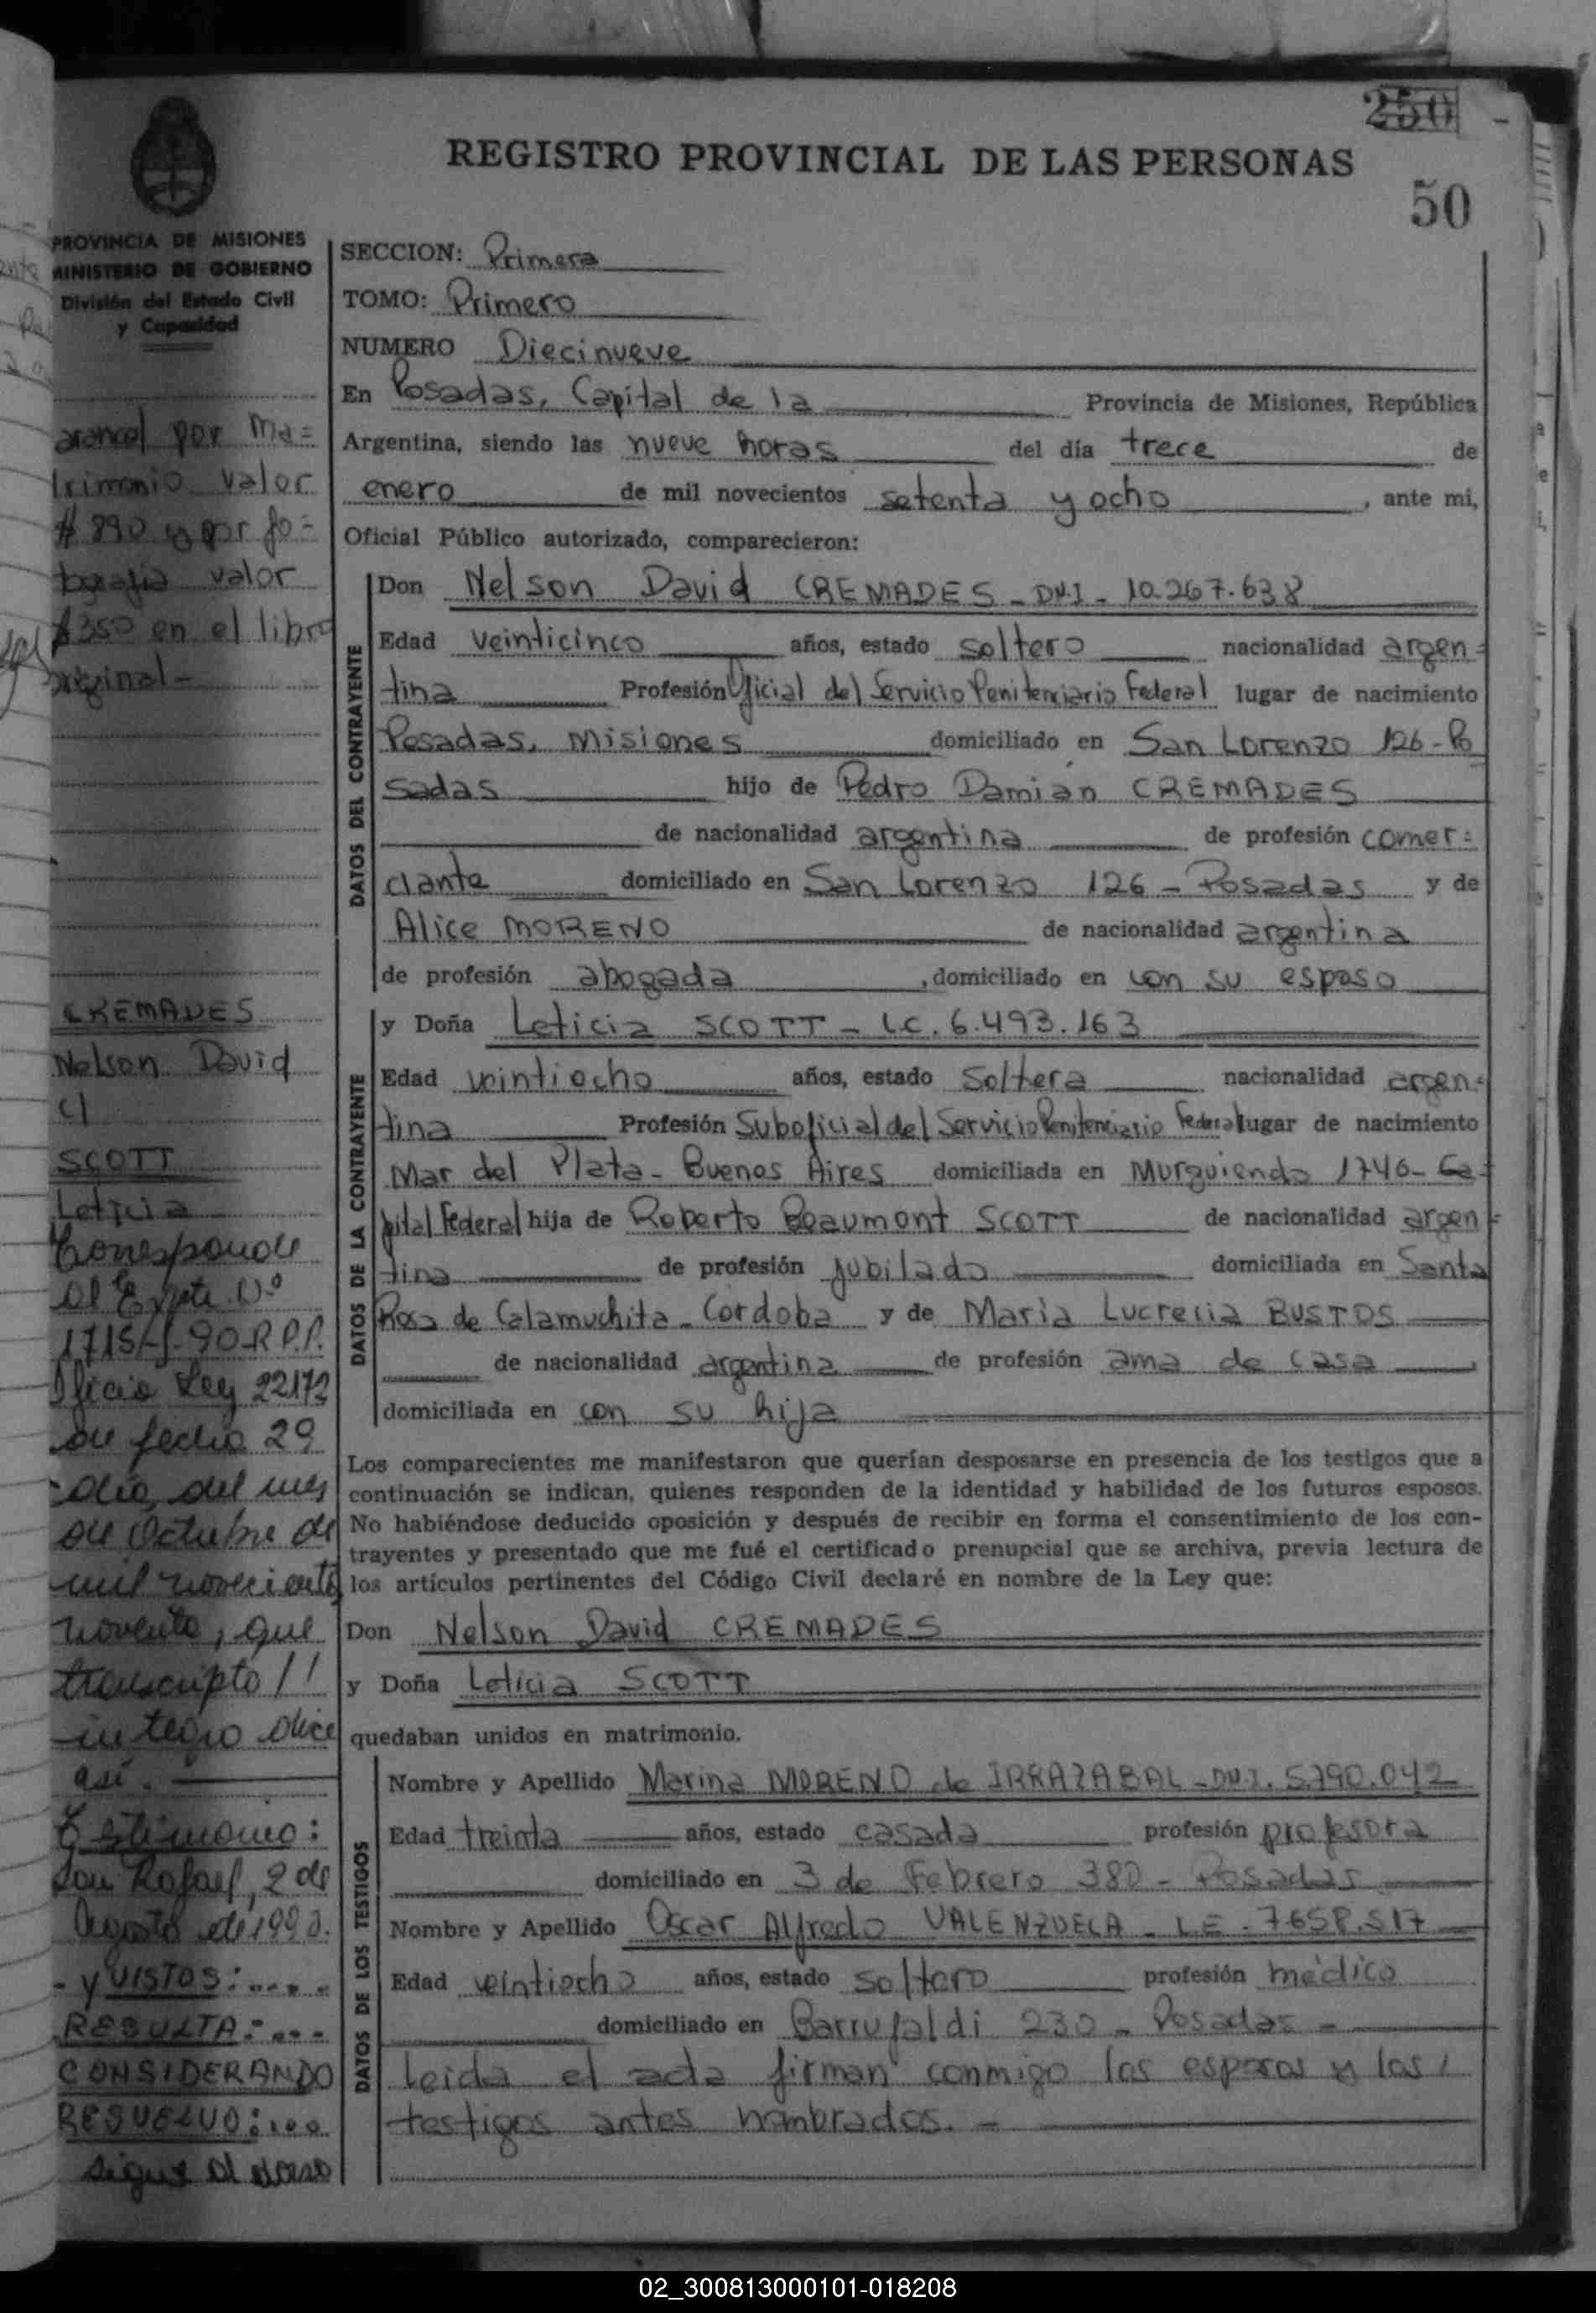 250
REGISTRO PROVINCIAL DE LAS PERSONAS
50
PROVINCIA DE MISIONES
MINISTERIO DE GOBIERNO
División del Estado Civil
y Capacidad
arancel por Ma=
trimonio valor
$ 890 y por fo=
tografia valor
$350 en el libro
original-
CREMADES
Nelson David
c/
SCOTT
Leticia
Corresponde
al Expte Nº
1715/-90-R.P.P.
Oficio Ley 22172
de fecha 29
día, del mes
de Octubre de
mil novecientos
noventa, que
transcripto //
integro dice
así.
Testimonio:
San Rafael, 2 de
Agosto de 1990.
- y VISTOS: ....
RESULTA: ...
CONSIDERANDO
RESUELVO: ...
sigue al dorso
SECCION: Primera
TOMO: Primero
NUMERO Diecinueve
En Posadas, Capital de la Provincia de Misiones, República
Argentina, siendo las nueve horas del día trece de
enero de mil novecientos setenta y ocho, ante mi,
Oficial Público autorizado, comparecieron:
DATOS DEL CONTRAYENTE
Don Nelson David CREMADES - DN.I - 10.267.638
Edad veinticinco años, estado soltero nacionalidad argen=
tina Profesión Oficial del Servicio Penitenciario Federal lugar de nacimiento
Posadas, Misiones domiciliado en San Lorenzo 126-Po
sadas hijo de Pedro Damián CREMADES
de nacionalidad argentina de profesión comer=
ciante domiciliado en San Lorenzo 126 - Posadas y de
Alice MORENO de nacionalidad argentina
de profesión abogada, domiciliado en con su esposo
DATOS DE LA CONTRAYENTE
y Doña Leticia SCOTT - L.C. 6.493.163
Edad veintiocho años, estado Soltera nacionalidad argen=
tina Profesión Suboficial del Servicio Penitenciario Federal lugar de nacimiento
Mar del Plata - Buenos Aires domiciliada en Murguiendo 1746- Ca=
pital Federal hija de Roberto Beaumont SCOTT de nacionalidad argen=
tina de profesión jubilado domiciliada en Santa
Rosa de Calamuchita - Cordoba y de María Lucrecia BUSTOS
de nacionalidad argentina de profesión ama de casa
domiciliada en con su hija
Los comparecientes me manifestaron que querían desposarse en presencia de los testigos que a
continuación se indican, quienes responden de la identidad y habilidad de los futuros esposos.
No habiéndose deducido oposición y después de recibir en forma el consentimiento de los con-
trayentes y presentado que me fué el certificado prenupcial que se archiva, previa lectura de
los artículos pertinentes del Código Civil declaré en nombre de la Ley que:
Don Nelson David CREMADES
y Doña Leticia SCOTT
quedaban unidos en matrimonio.
DATOS DE LOS TESTIGOS
Nombre y Apellido Marina MORENO de IRRAZABAL - DN.I. 5.790.042
Edad treinta años, estado casada profesión profesora
domiciliado en 3 de Febrero 380 - Posadas
Nombre y Apellido Oscar Alfredo VALENZUELA - L.E. 7.658.517
Edad veintiocho años, estado soltero profesión médico
domiciliado en Barrufaldi 230 - Posadas -
Leida el acta firman conmigo los esposos y los /
testigos antes nombrados. -
02_300813000101-018208